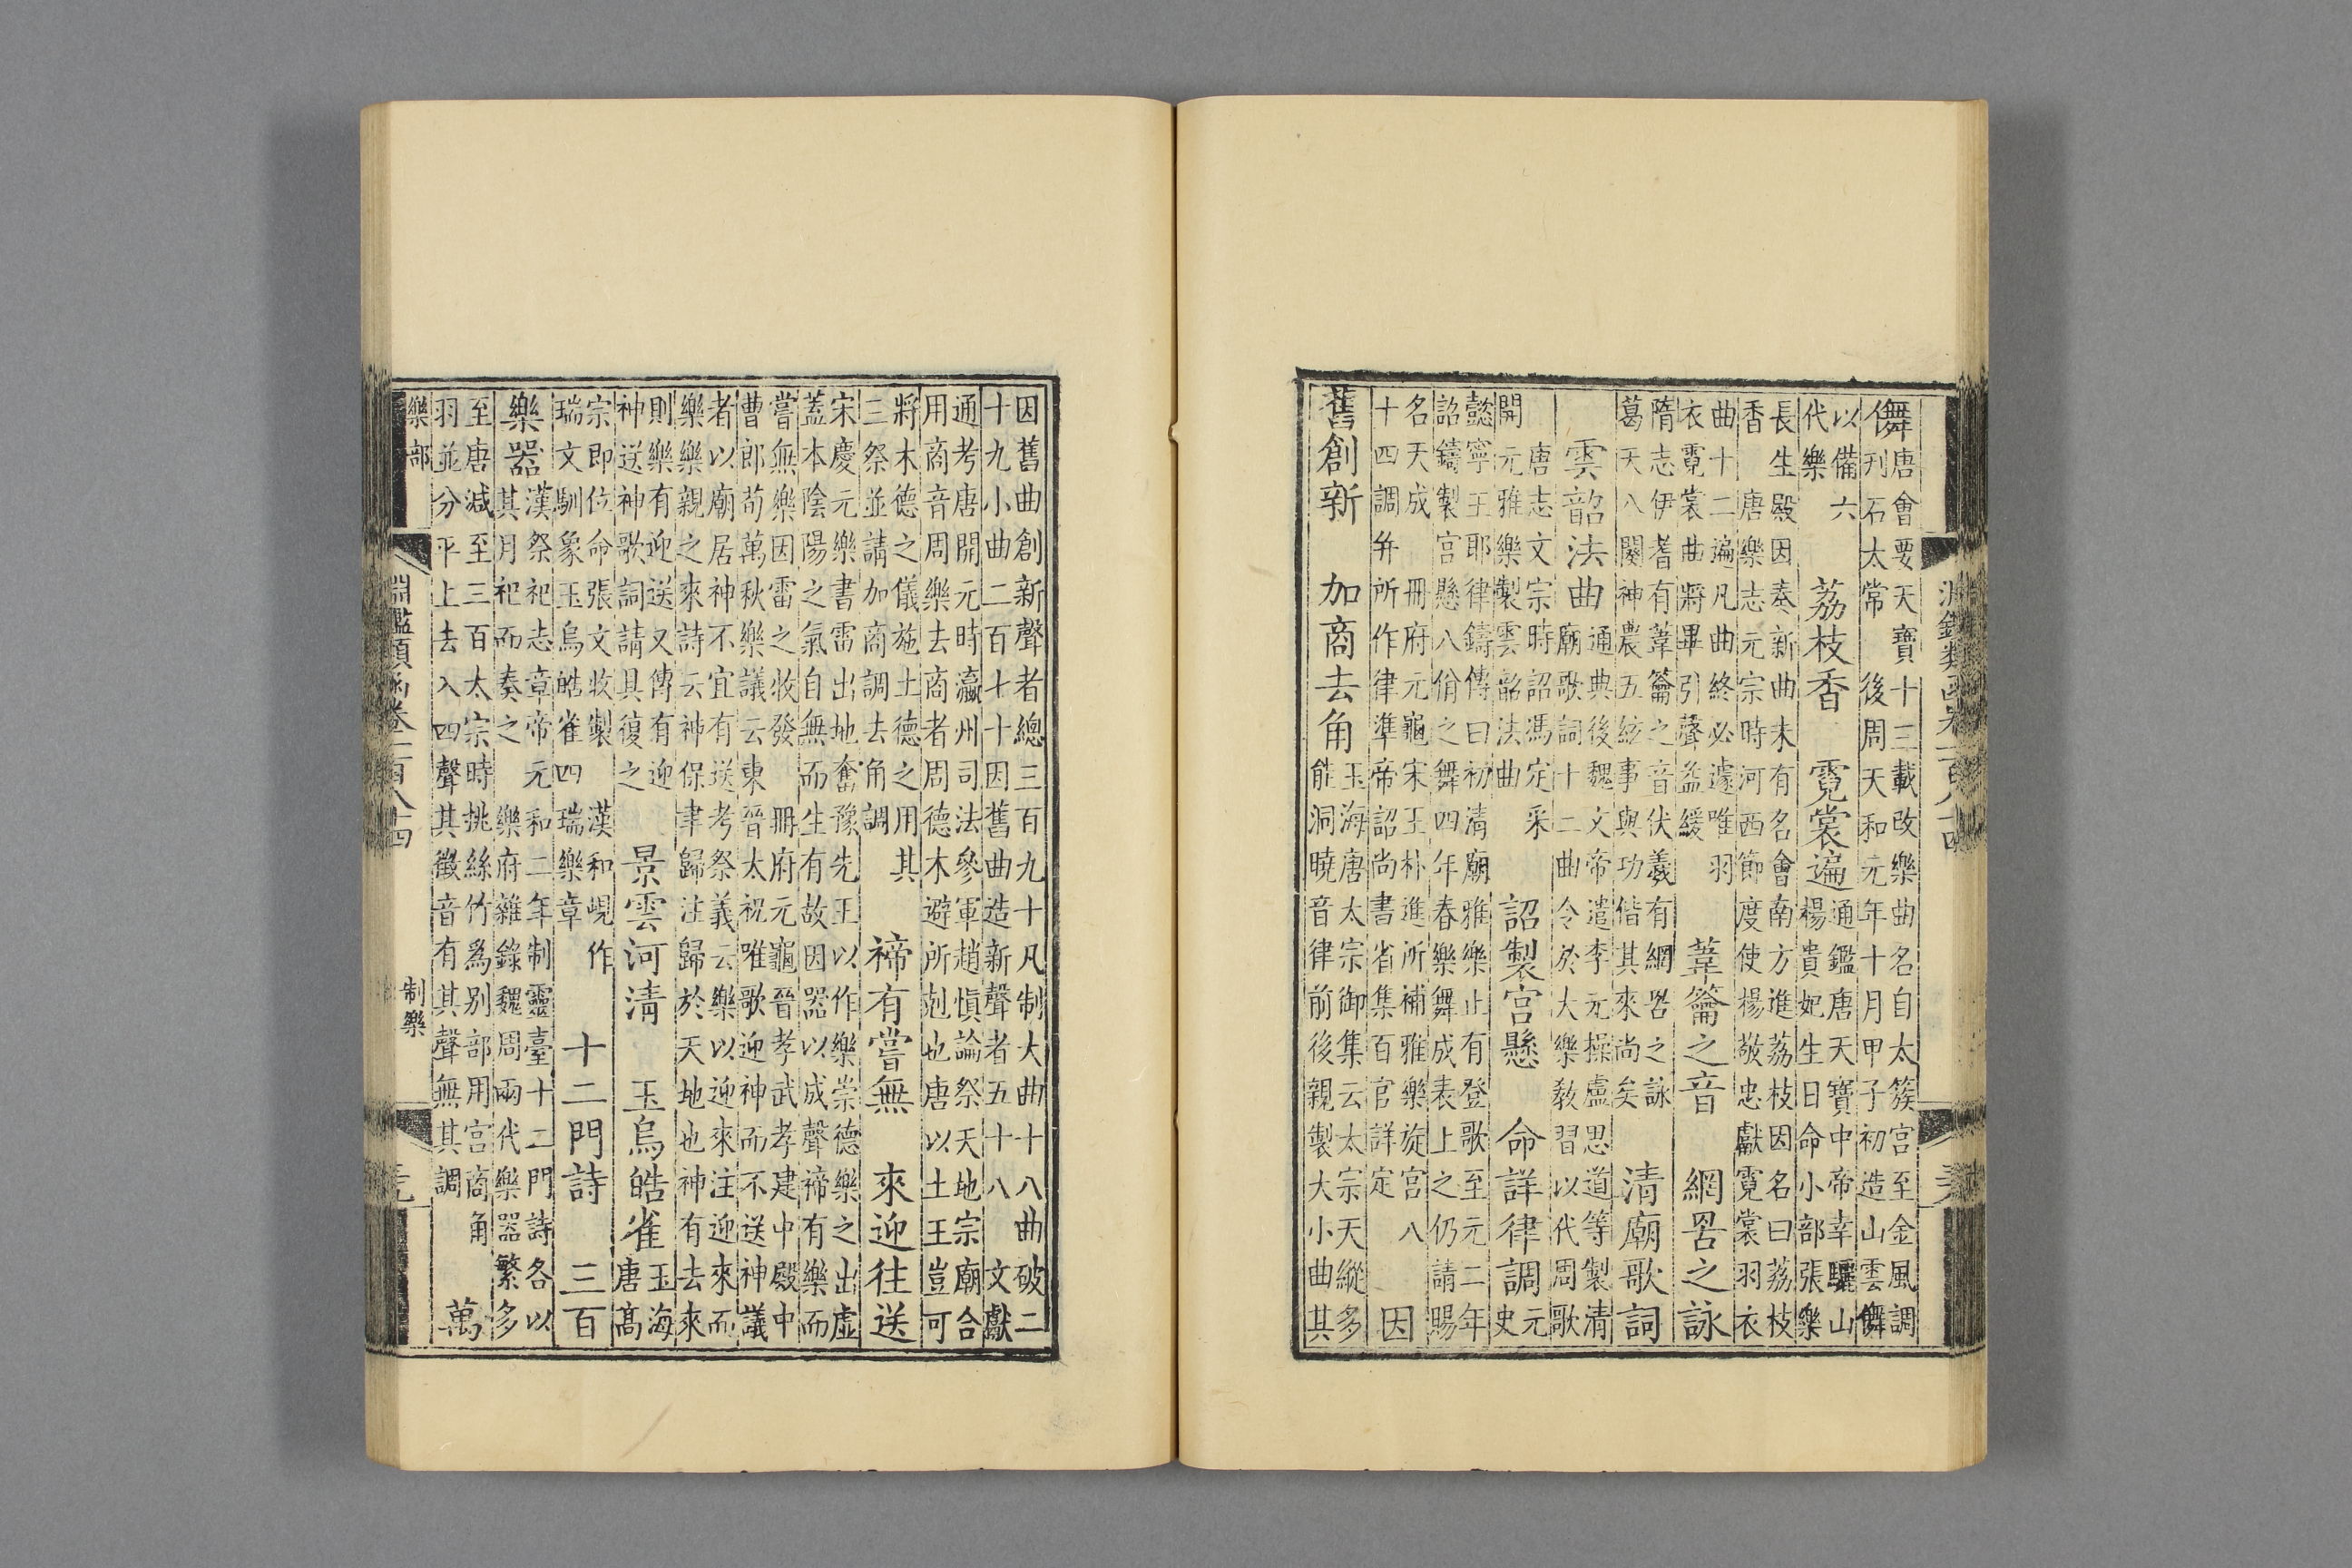 淵鑑類函卷一百八十四
儛
唐會要天寶十三載改樂曲名自太簇宮至金風調
刋石太常 後周天和元年十月甲子初造山雲儛
以備六
代樂
荔枝香 霓裳遍
通鑑唐天寶中帝幸驪山
楊貴妃生日命小部張樂
長生殿因奏新曲未有名會南方進荔枝因名曰荔枝
香 唐樂志元宗時河西節度使楊敬忠獻霓裳羽衣
曲十二遍凡曲終必遽唯羽
衣霓裳曲將畢引聲益緩
葦籥之音 網罟之詠
隋志伊耆有葦籥之音伏羲有網罟之詠
葛天八闋神農五絃事與功偕其來尚矣
清廟歌詞
通典後魏文帝遣李元操盧思道等製清
廟歌詞十二曲令於大樂教習以代周歌
雲韶法曲
唐志文宗時詔馮定采
開元雅樂製雲韶法曲
詔製宮懸 命詳律調
元
史
懿寧王耶律鑄傳曰初清廟雅樂止有登歌至元二年
詔鑄製宮懸八佾之舞四年春樂舞成表上之仍請賜
名天成 冊府元龜宋王朴進所補雅樂旋宮八
十四調并所作律準帝詔尚書省集百官詳定
因
舊創新 加商去角
玉海唐太宗御集云太宗天縱多
能洞曉音律前後親製大小曲其
因舊曲創新聲者總三百九十凡制大曲十八曲破二
十九小曲二百七十因舊曲造新聲者五十八 文獻
通考唐開元時瀛州司法參軍趙慎論祭天地宗廟合
用商音周樂去商者周德木避所剋也唐以土王豈可
將木德之儀施土德之用其
三祭並請加商調去角調
禘有嘗無 來迎往送
宋慶元樂書雷出地奮豫先王以作樂崇德樂之出虛
蓋本陰陽之氣自無而生有故因器以成聲禘有樂而
嘗無樂因雷之收發 冊府元龜晉孝武孝建中殿中
曹郎荀萬秋樂議云東晉太祝唯歌迎神而不送神議
者以廟居神不宜有送考祭義云樂以迎來注迎來而
樂樂親之來詩云神保聿歸注歸於天地也神有去來
則樂有迎送又傳有迎
神送神歌詞請具復之
景雲河清 玉烏皓雀
玉海
唐高
宗即位命張文收製 漢和峴作
瑞文馴象玉烏皓雀四瑞樂章
十二門詩 三百
樂器
漢祭祀志章帝元和二年制靈臺十二門詩各以
其月祀而奏之 樂府雜錄魏周兩代樂器繁多
至唐減至三百太宗時挑絲竹爲別部用宮商角
羽並分平上去入四聲其徵音有其聲無其調
萬
樂部 淵鑑類函卷一百八十四 制樂